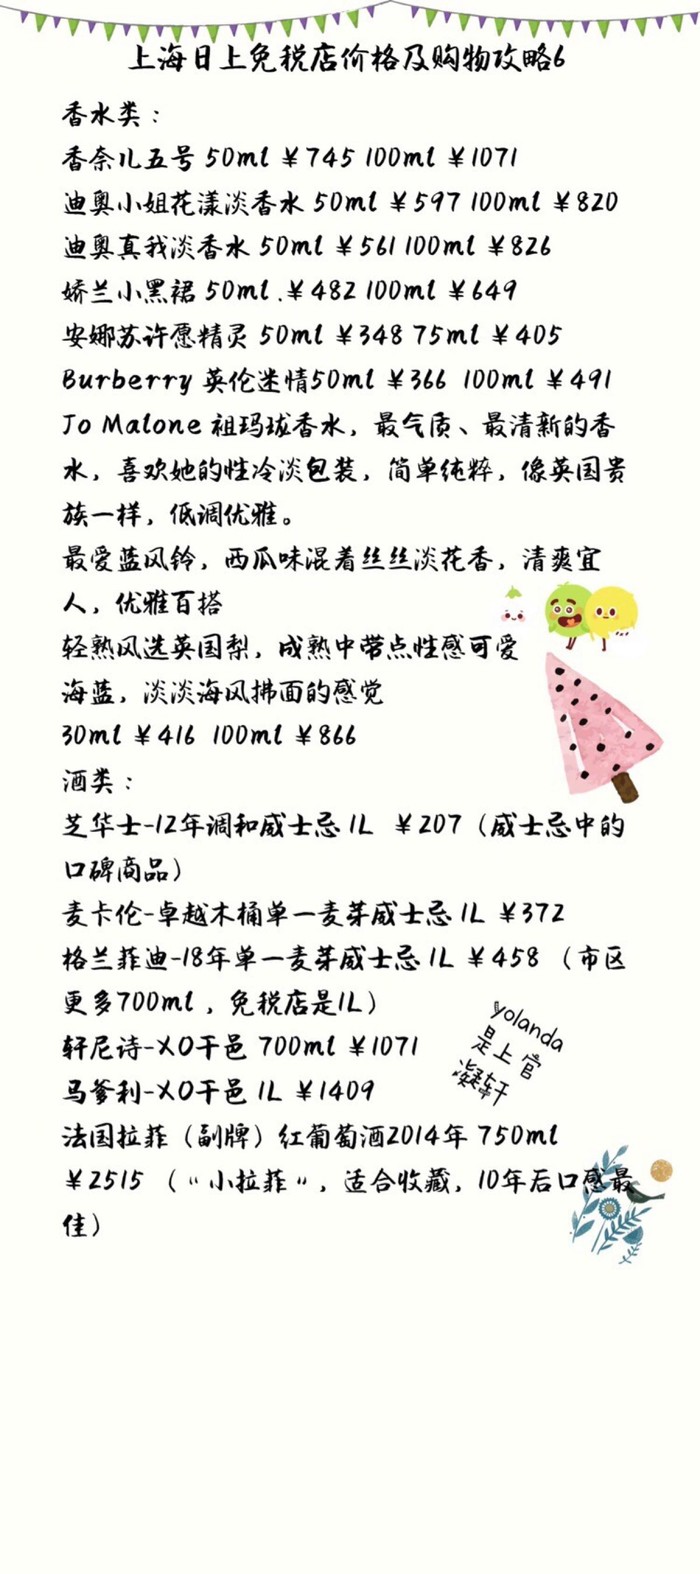 上海日上免税店价格及购物攻略6
香水类：
香奈儿五号 50ml ￥745 100ml ￥1071
迪奥小姐花漾淡香水 50ml ￥597 100ml ￥820
迪奥真我淡香水 50ml ￥561 100ml ￥826
娇兰小黑裙 50ml .￥482 100ml ￥649
安娜苏许愿精灵 50ml ￥348 75ml ￥405
Burberry 英伦迷情50ml ￥366 100ml ￥491
Jo Malone 祖玛珑香水，最气质、最清新的香
水，喜欢她的性冷淡包装，简单纯粹，像英国贵
族一样，低调优雅。
最爱蓝风铃，西瓜味混着丝丝淡花香，清爽宜
人，优雅百搭
轻熟风选英国梨，成熟中带点性感可爱
海蓝，淡淡海风拂面的感觉
30ml ￥416 100ml ￥866
酒类：
芝华士-12年调和威士忌 1L ￥207（威士忌中的
口碑商品）
麦卡伦-卓越木桶单一麦芽威士忌 1L ￥372
格兰菲迪-18年单一麦芽威士忌 1L ￥458 （市区
更多700ml ，免税店是1L）
轩尼诗-XO干邑 700ml ￥1071
马爹利-XO干邑 1L ￥1409
法国拉菲（副牌）红葡萄酒2014年 750ml
￥2515 （“小拉菲“，适合收藏，10年后口感最
佳）
yolanda
是上官
凝轩